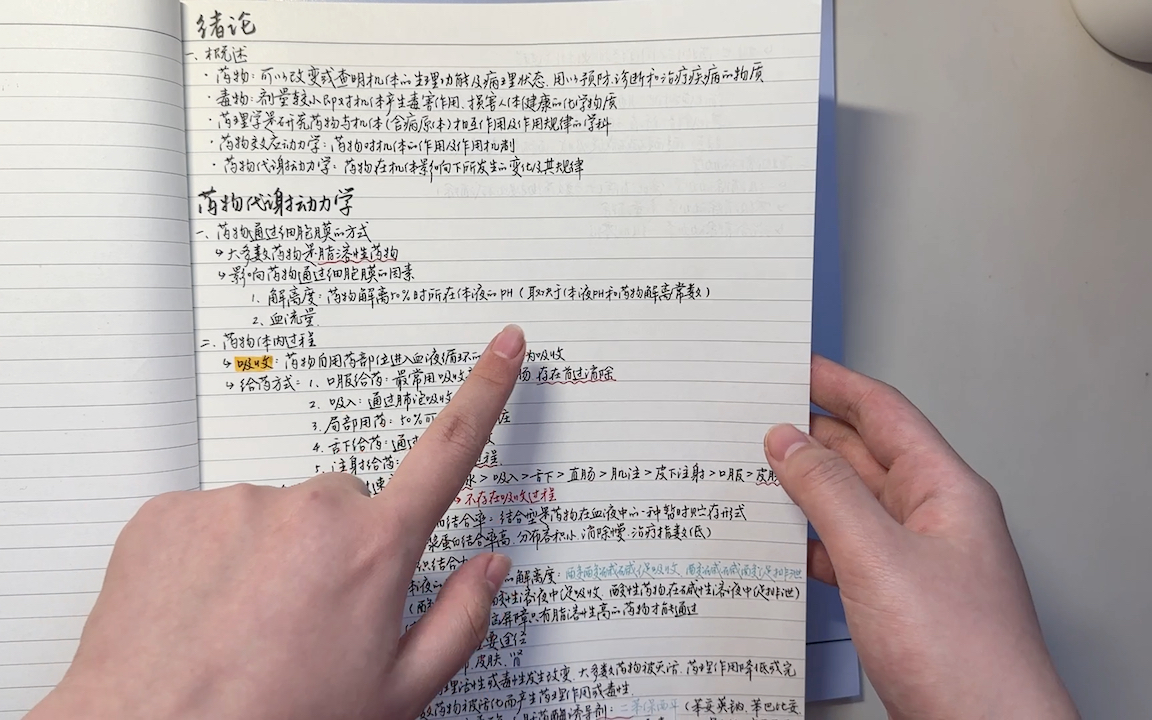 绪论
一、概述
· 药物：可以改变或查明机体的生理功能及病理状态，用以预防、诊断和治疗疾病的物质
· 毒物：剂量较小即对机体产生毒害作用、损害人体健康的化学物质
· 药理学是研究药物与机体（含病原体）相互作用及作用规律的学科
· 药物效应动力学：药物对机体的作用及作用机制
· 药物代谢动力学：药物在机体影响下所发生的变化及其规律
药物代谢动力学
一、药物通过细胞膜的方式
↳ 大多数药物是脂溶性药物
↳ 影响药物通过细胞膜的因素
1. 解离度：药物解离50%时所在体液的PH（取决于体液PH和药物解离常数）
2. 血流量
二、药物体内过程
↳ 吸收：药物自用药部位进入血液循环的 为吸收
↳ 给药方式：1. 口服给药：最常用 吸收 肠，存在首过消除
2. 吸入：通过肺泡吸收
3. 局部用药：50%可
4. 舌下给药：通过
5. 注射给药： 过程
> 吸入 > 舌下 > 直肠 > 肌注 > 皮下注射 > 口服 > 皮肤
不存在吸收过程
结合率：结合型是药物在血液中的一种暂时贮存形式
浆蛋白结合率高，分布容积小，消除慢，治疗指数低）
织结合
体液的 的解离度：酸酸碱碱促吸收，酸碱碱酸促排泄
酸性溶液中促吸收，酸性药物在碱性溶液中促排泄）
屏障只有脂溶性高的药物才能通过
要途径
皮肤、肾
理活性或毒性发生改变，大多数药物被灭活，药理作用降低或完
数药物被活化而产生药理作用或毒性
药酶诱导剂：二苯保 （苯妥英钠、苯巴比妥